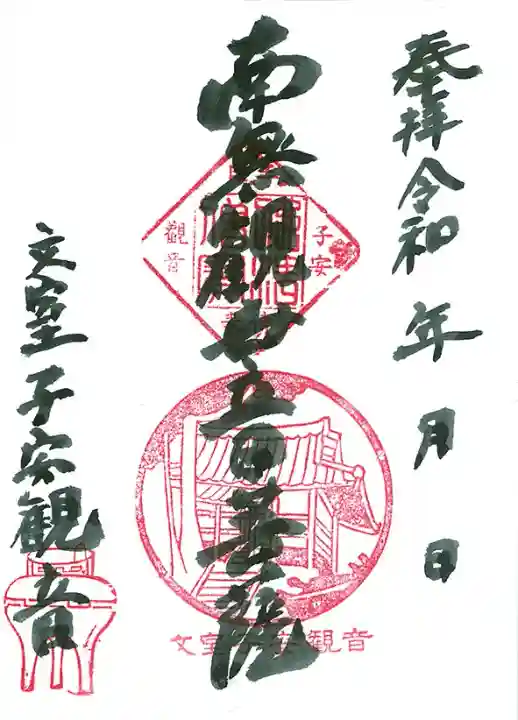 奉拝令和 年 月 日
南無観世音菩薩
文室子安観音
子安
観音
文室子安観音